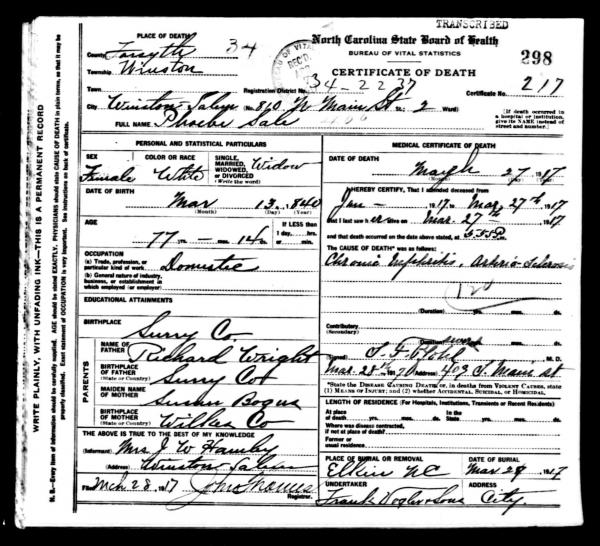 TRANSCRIBED
PLACE OF DEATH
County Forsyth 34
Township Winston
North Carolina State Board of Health
BUREAU OF VITAL STATISTICS
298
CERTIFICATE OF DEATH
Registration District No. 34-2237
Certificate No. 217
City Winston-Salem No. 860 N Main St. St.; 2 Ward)
[If death occurred in a hospital or institution, give its NAME instead of street and number.]
FULL NAME Phoebe Sale
PERSONAL AND STATISTICAL PARTICULARS
SEX
Female
COLOR OR RACE
White
SINGLE, MARRIED, WIDOWED, OR DIVORCED (Write the word)
Widow
DATE OF BIRTH
Mar 13 1840
(Month) (Day) (Year)
AGE
77 yrs. mos. 14 ds.
If LESS than
1 day, hrs.
or min.
OCCUPATION
(a) Trade, profession, or particular kind of work Domestic
(b) General nature of industry, business, or establishment in which employed (or employer)
EDUCATIONAL ATTAINMENTS
BIRTHPLACE
Surry Co.
PARENTS
NAME OF FATHER Richard Wright
BIRTHPLACE OF FATHER (State or Country) Surry Co
MAIDEN NAME OF MOTHER Susan Bogus
BIRTHPLACE OF MOTHER (State or Country) Wilkes Co
THE ABOVE IS TRUE TO THE BEST OF MY KNOWLEDGE
(Informant) Mrs J W Hamlin
(Address) Winston Salem
Filed Mch 28 1917
Registrar.
MEDICAL CERTIFICATE OF DEATH
DATE OF DEATH
March 27 1917
(Month) (Day) (Year)
I HEREBY CERTIFY, That I attended deceased from
Jan - 1917 to Mar 27th 1917
that I last saw her on Mar. 27th 1917
and that death occurred on the date above stated, at 5.35P
The CAUSE OF DEATH* was as follows:
Chronic nephritis, Arterio-Sclerosis
120
(Duration) yrs. mos. ds.
Contributory
(Secondary)
(Duration) yrs. mos. ds.
(Signed) M. D.
Mar. 28 1917 (Address) 409 S. Main St
*State the DISEASE CAUSING DEATH, or, in deaths from VIOLENT CAUSES, state (1) MEANS OF INJURY; and (2) whether ACCIDENTAL, SUICIDAL, OR HOMICIDAL.
LENGTH OF RESIDENCE (For Hospitals, Institutions, Transients or Recent Residents)
At place of death yrs. mos. ds. In the State yrs. mos. ds.
Where was disease contracted, if not at place of death?
Former or usual residence
PLACE OF BURIAL OR REMOVAL
Elkin NC
DATE OF BURIAL
Mar 29 1917
UNDERTAKER
Frank Vogler & Sons
ADDRESS
City.
WRITE PLAINLY, WITH UNFADING INK—THIS IS A PERMANENT RECORD
N. B.—Every item of information should be carefully supplied. AGE should be stated EXACTLY. PHYSICIANS should state CAUSE OF DEATH in plain terms, so that it may be properly classified. Exact statement of OCCUPATION is very important. See instructions on back of certificate.